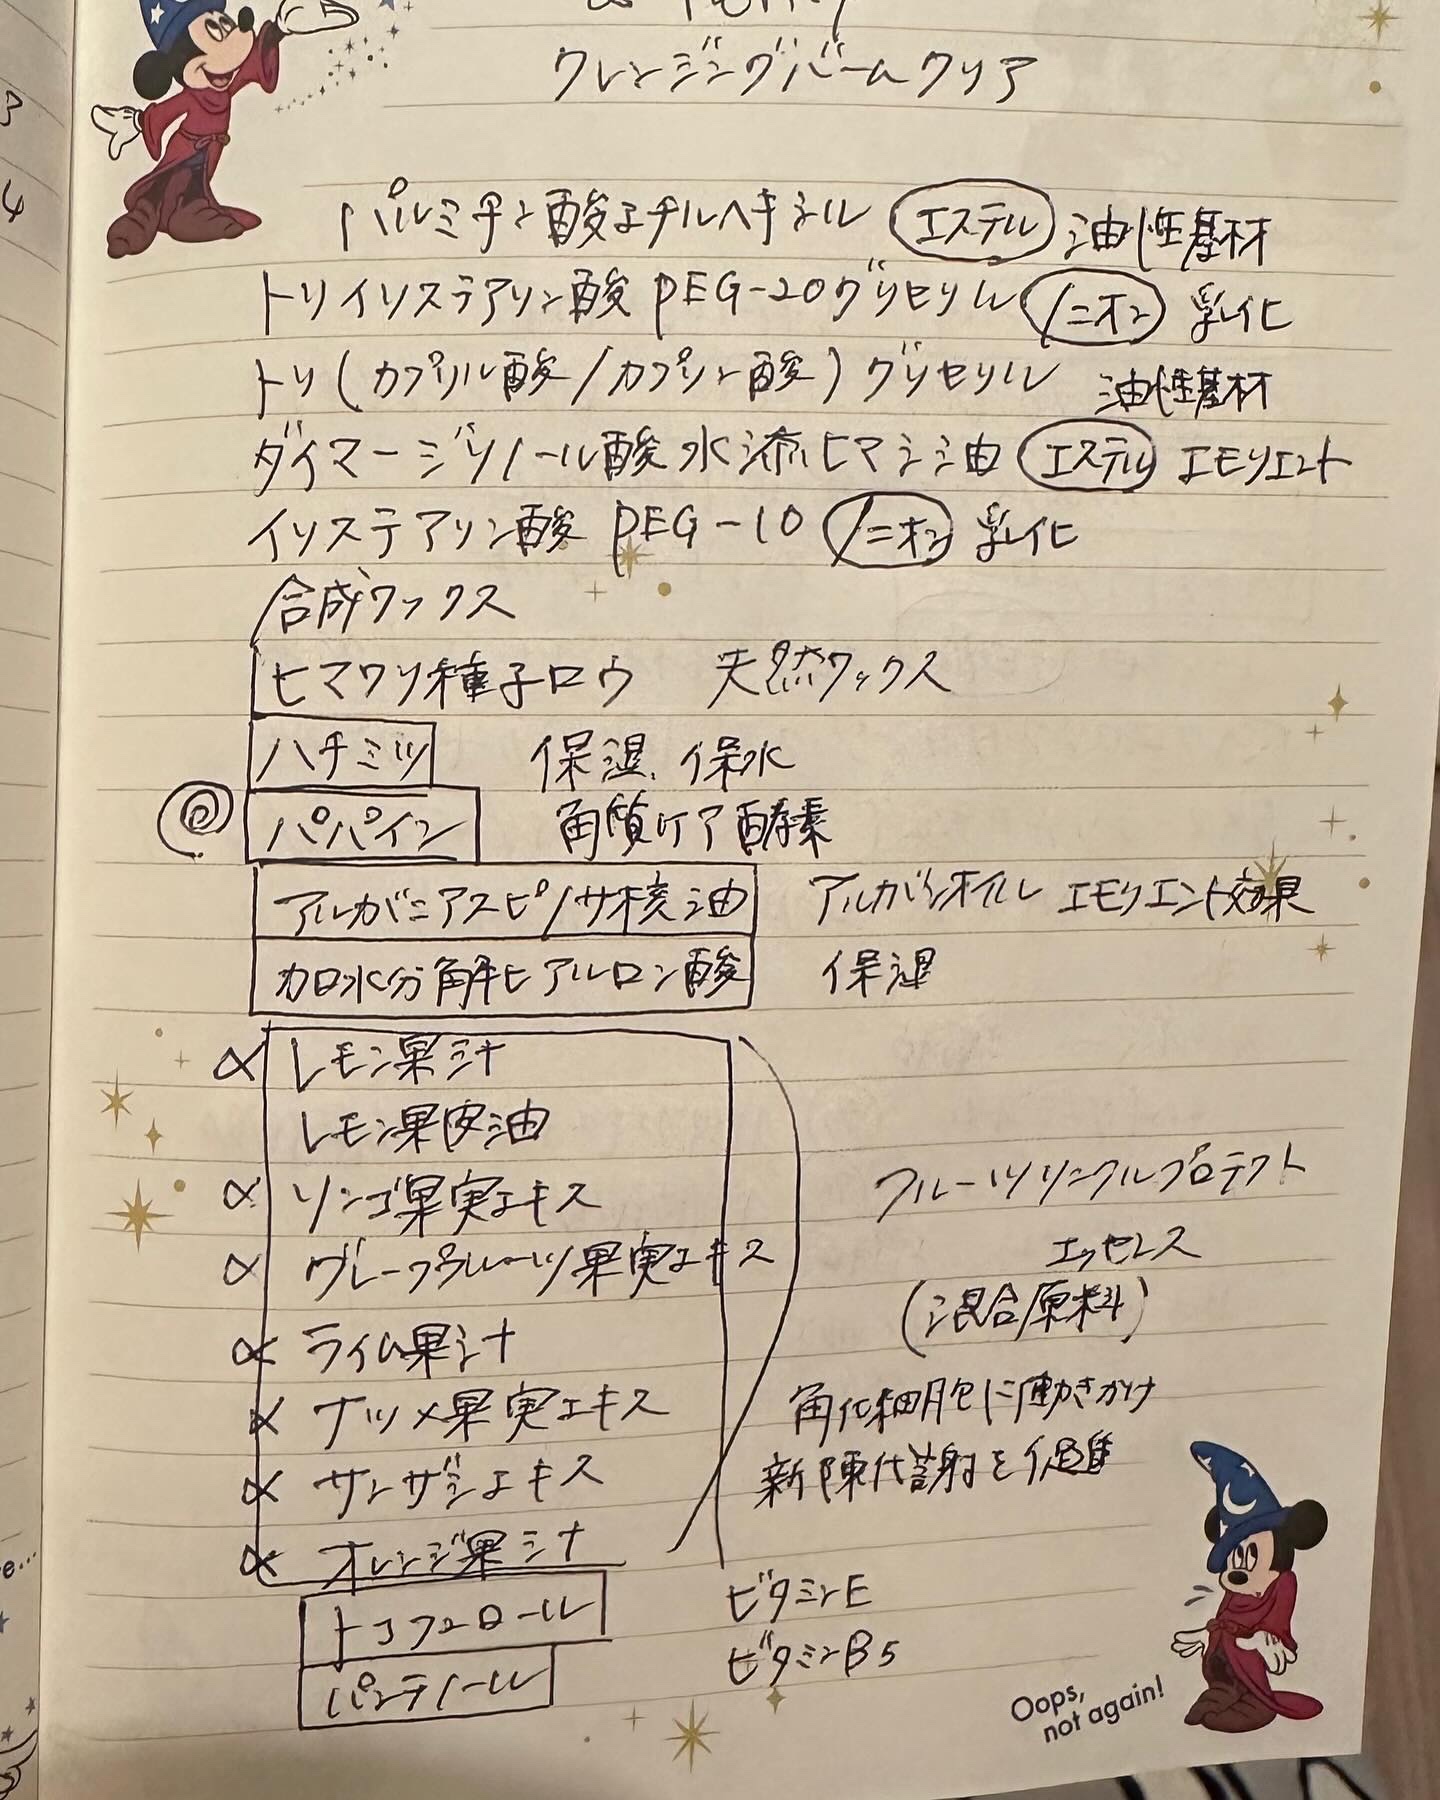 クレンジングバームクリア
3
4
パルミチン酸エチルヘキシル エステル 油性基材
トリイソステアリン酸PEG-20グリセリル ノニオン 乳化
トリ(カプリル酸/カプリン酸)グリセリル 油性基材
ダイマージリノール酸水添ヒマシ油 エステル エモリエント
イソステアリン酸PEG-10 ノニオン 乳化
合成ワックス
ヒマワリ種子ロウ 天然ワックス
ハチミツ 保湿、保水
パパイン 角質ケア酵素
アルガニアスピノサ核油 アルガンオイル エモリエント効果
加水分解ヒアルロン酸 保湿
α レモン果汁
レモン果皮油
α リンゴ果実エキス
α グレープフルーツ果実エキス
α ライム果汁
α ナツメ果実エキス
α サンザシエキス
α オレンジ果汁
フルーツリンクルプロテクト
エッセンス
(混合原料)
角化細胞に働きかけ
新陳代謝を促進
トコフェロール ビタミンE
パンテノール ビタミンB5
Oops,
not again!
e...